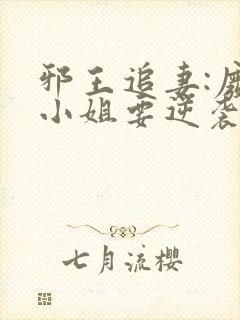 邪王追妻:
小姐要逆袭
七月流樱